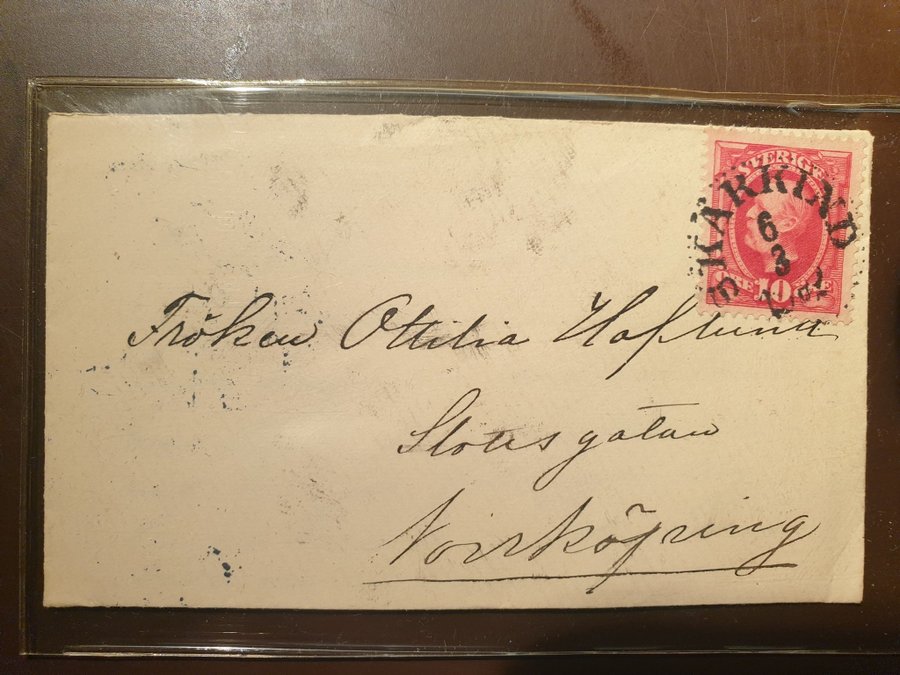 SVERIGE
SKÄRKIND
6
3
10
Fröken Ottilia
Slottsgatan
Norrköping